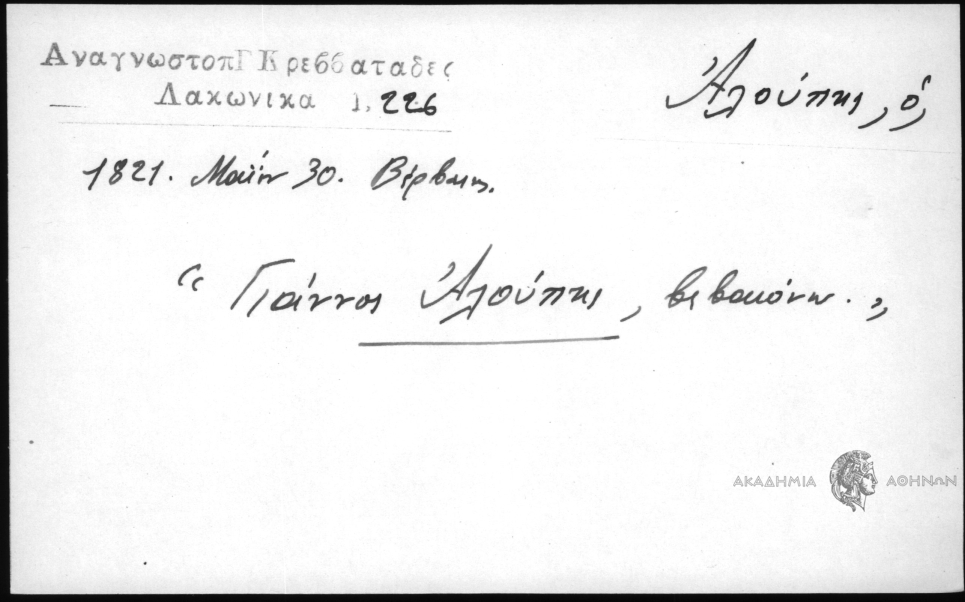 ΑναγνωστοπΓ Κρεββαταδες
Λακωνικα 1, 226
Ἀλούπης, ὁ,
1821. Μαΐου 30. Βέρβαινα.
“ Γιάννος Ἀλούπης, βεβαιόνω. „
ΑΚΑΔΗΜΙΑ ΑΘΗΝΩΝ